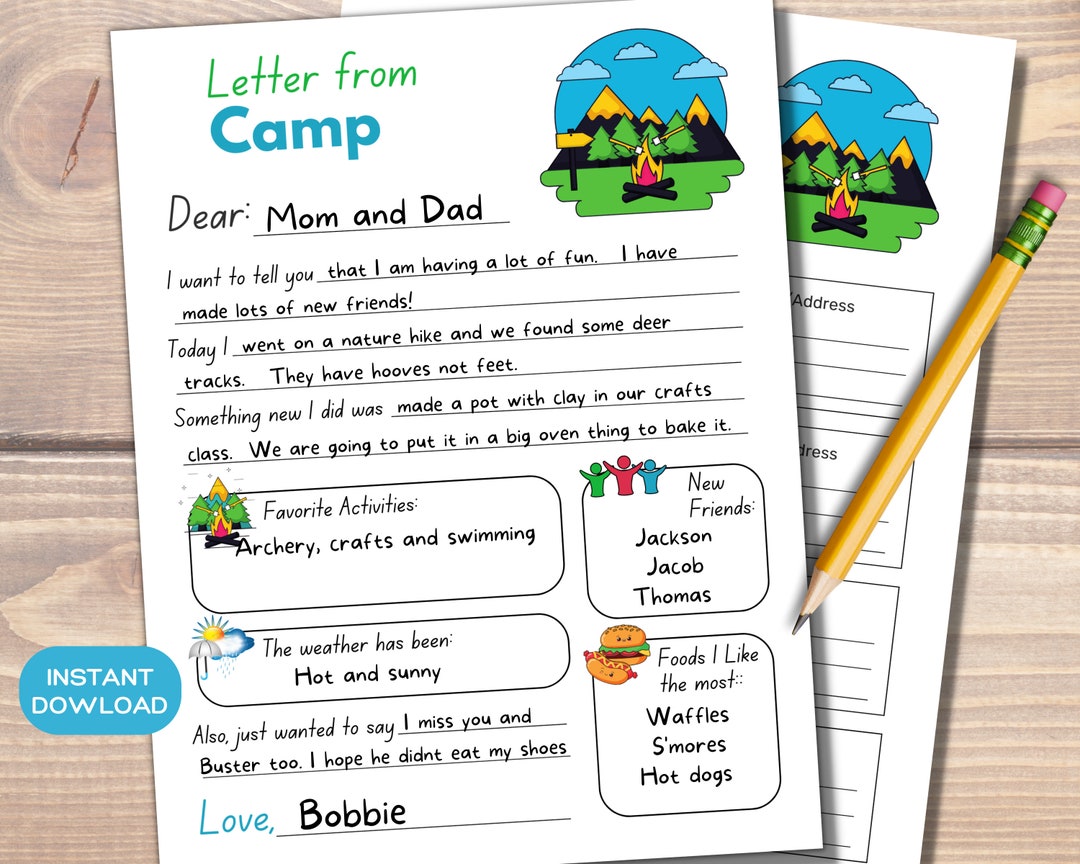 Letter from
Camp
Dear: Mom and Dad
I want to tell you that I am having a lot of fun. I have
made lots of new friends!
Today I went on a nature hike and we found some deer
tracks. They have hooves not feet.
Something new I did was made a pot with clay in our crafts
class. We are going to put it in a big oven thing to bake it.
Favorite Activities:
Archery, crafts and swimming
New
Friends:
Jackson
Jacob
Thomas
The weather has been:
Hot and sunny
Foods I Like
the most::
Waffles
S'mores
Hot dogs
Also, just wanted to say I miss you and
Buster too. I hope he didnt eat my shoes
Love, Bobbie
INSTANT
DOWLOAD
/Address